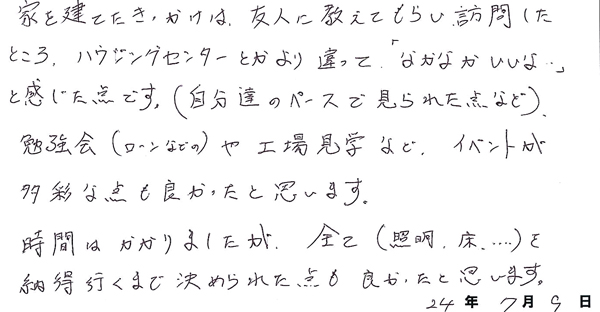 家を建てたきっかけは、友人に教えてもらい訪問した
ところ、ハウジングセンターとかより違って、「なかなかいいな…」
と感じた点です。(自分達のペースで見られた点など)、
勉強会(ローンなどの)や工場見学など、イベントが
多彩な点も良かったと思います。
時間はかかりましたが、全て(照明、床、….)を
納得行くまで決められた点も良かったと思います。
24年7月9日